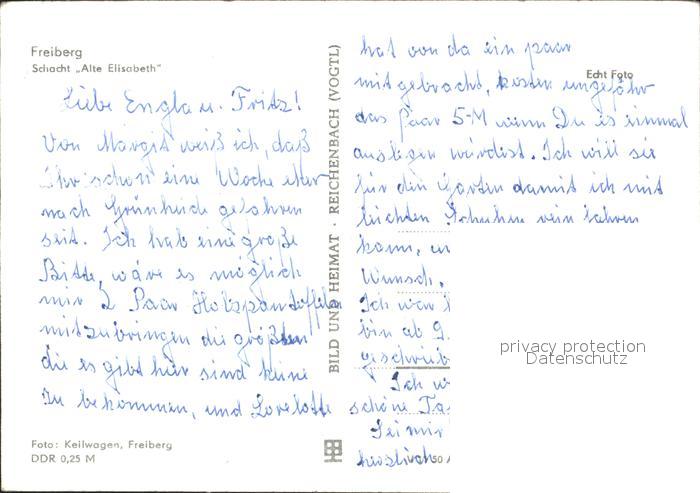 Freiberg
Schacht „Alte Elisabeth"
Liebe Engla u. Fritz!
Von Margit weiß ich, daß
Ihr schon eine Woche eher
nach Grünheide gefahren
seit. Ich hab eine große
Bitte, wäre es möglich
mir 2 Paar Holzpantoffeln
mitzubringen die größten
die es gibt hier sind keine
zu bekommen, und Lorelotte
Foto: Keilwagen, Freiberg
DDR 0,25 M
BILD UND HEIMAT · REICHENBACH (VOGTL)
Echt Foto
hat von da ein paar
mitgebracht, kosten ungefähr
das Paar 5-M wenn Du es einmal
auslegen würdest. Ich will sie
für den Garten damit ich mit
leichten Schuhen rein fahren
kann, un
Wunsch.
Ich war
bin ab 9.
geschrieb
Ich w
schöne Ta
Sei mir
herzlich
privacy protection
Datenschutz